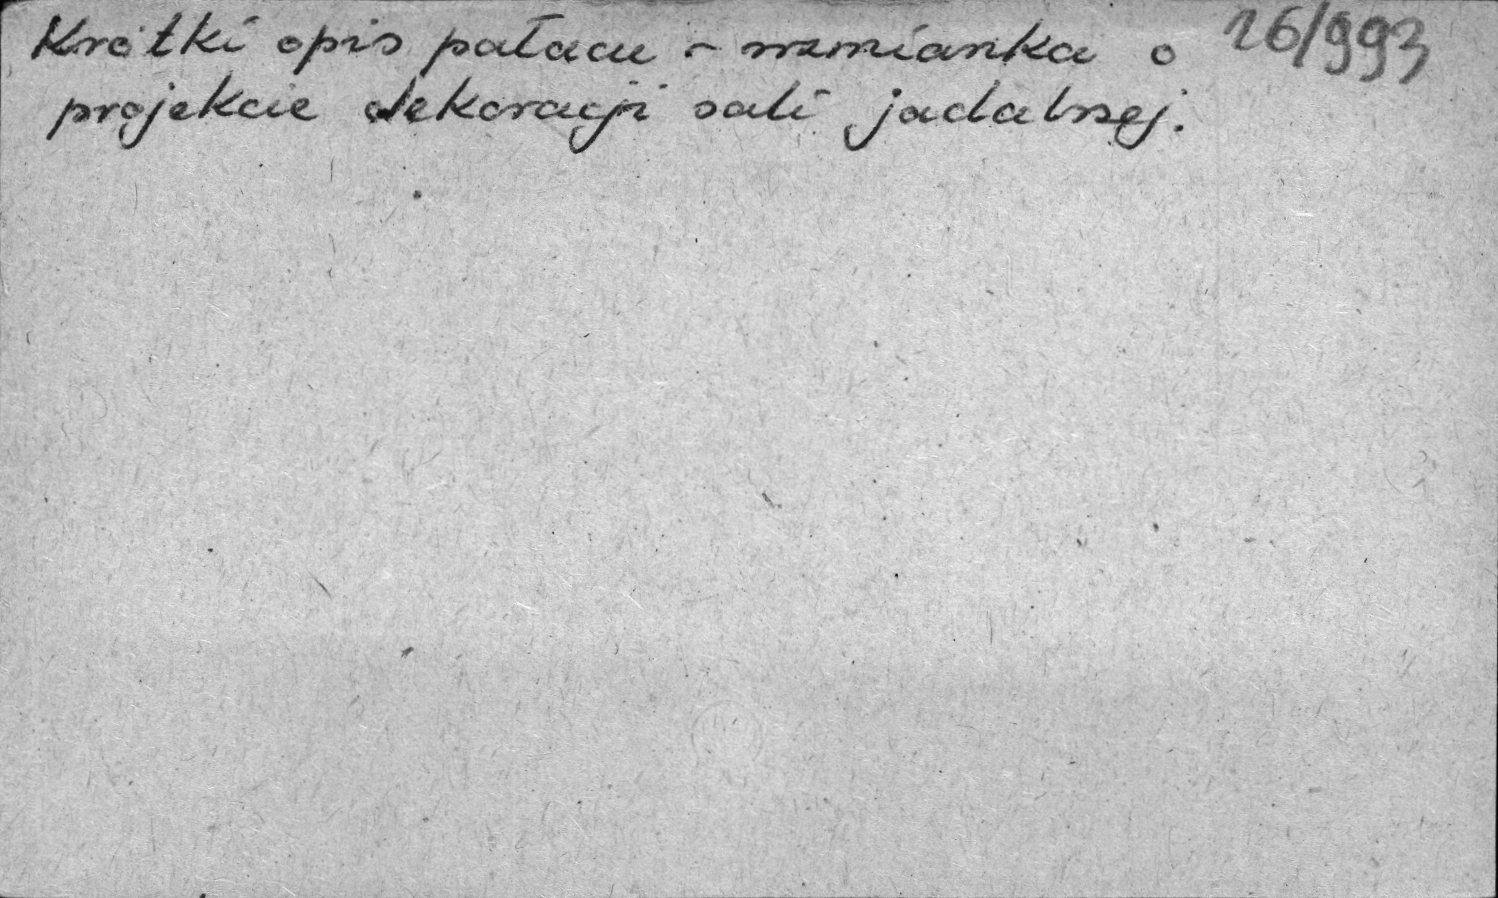 Krótki opis pałacu - wzmianka o 26/993
projekcie dekoracji sali jadalnej.